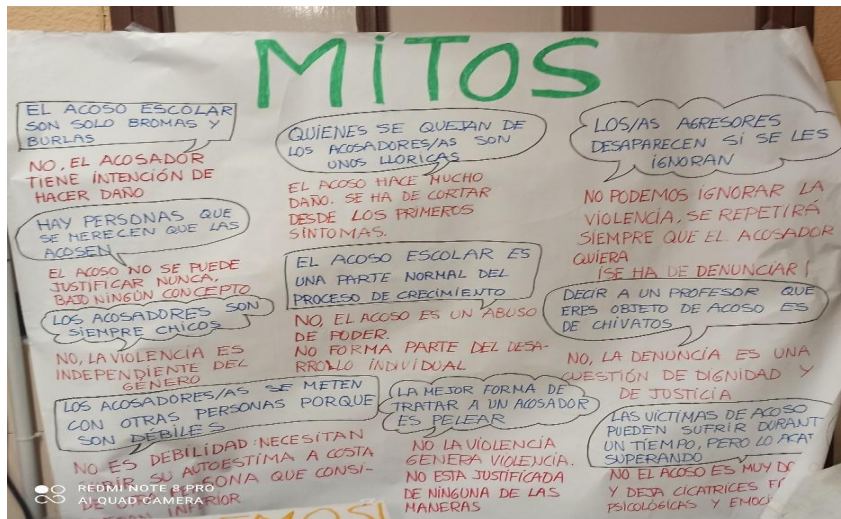 MITOS
EL ACOSO ESCOLAR
SON SOLO BROMAS Y
BURLAS
NO, EL ACOSADOR
TIENE INTENCIÓN DE
HACER DAÑO
HAY PERSONAS QUE
SE MERECEN QUE LAS
ACOSEN
EL ACOSO NO SE PUEDE
JUSTIFICAR NUNCA,
BAJO NINGÚN CONCEPTO
LOS ACOSADORES SON
SIEMPRE CHICOS
NO, LA VIOLENCIA ES
INDEPENDIENTE DEL
GÉNERO
LOS ACOSADORES/AS SE METEN
CON OTRAS PERSONAS PORQUE
SON DÉBILES
NO ES DEBILIDAD: NECESITAN
SU AUTOESTIMA A COSTA
QUE CONSI-
INFERIOR
QUIENES SE QUEJAN DE
LOS ACOSADORES/AS SON
UNOS LLORICAS
EL ACOSO HACE MUCHO
DAÑO. SE HA DE CORTAR
DESDE LOS PRIMEROS
SÍNTOMAS.
EL ACOSO ESCOLAR ES
UNA PARTE NORMAL DEL
PROCESO DE CRECIMIENTO
NO, EL ACOSO ES UN ABUSO
DE PODER.
NO FORMA PARTE DEL DESA-
RROLLO INDIVIDUAL
LA MEJOR FORMA DE
TRATAR A UN ACOSADOR
ES PELEAR
NO LA VIOLENCIA
GENERA VIOLENCIA.
NO ESTA JUSTIFICADA
DE NINGUNA DE LAS
MANERAS
LOS/AS AGRESORES
DESAPARECEN SI SE LES
IGNORAN
NO PODEMOS IGNORAR LA
VIOLENCIA, SE REPETIRÁ
SIEMPRE QUE EL ACOSADOR
QUIERA
¡SE HA DE DENUNCIAR!
DECIR A UN PROFESOR QUE
ERES OBJETO DE ACOSO ES
DE CHIVATOS
NO, LA DENUNCIA ES UNA
CUESTIÓN DE DIGNIDAD Y
DE JUSTICIA
LAS VÍCTIMAS DE ACOSO
PUEDEN SUFRIR DURANT
UN TIEMPO, PERO LO
SUPERANDO
NO EL ACOSO ES MUY
Y DEJA CICATRICES
PSICOLÓGICAS Y
REDMI NOTE 8 PRO
AI QUAD CAMERA